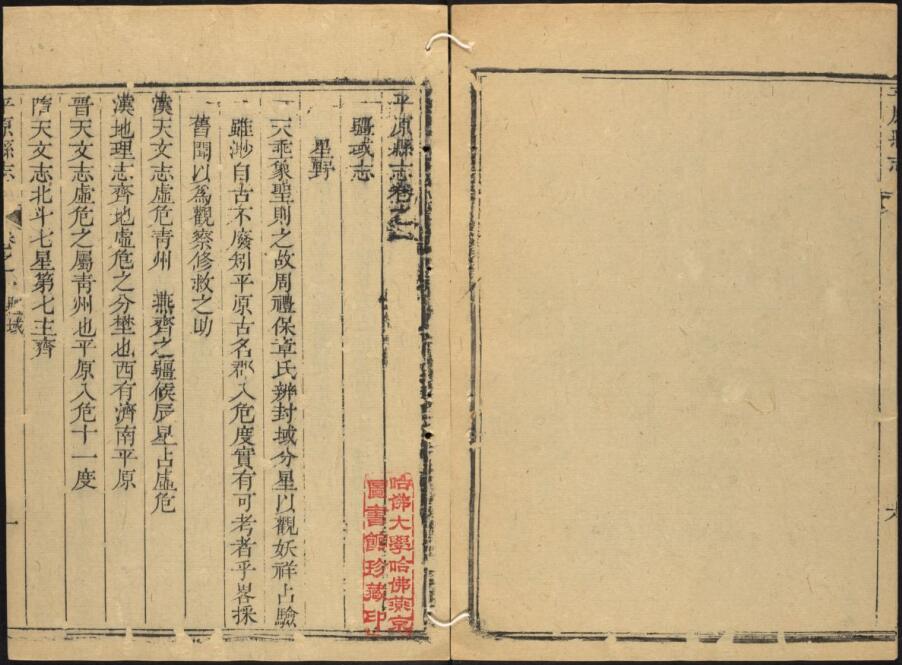 平原縣志
平原縣志卷之一
疆域志
星野
天垂象聖則之故周禮保章氏辨封域分星以觀妖祥占驗
雖渺自古不廢矧平原古名郡入危度實有可考者乎畧採
舊聞以爲觀察修救之助
漢天文志虛危青州　燕齊之疆候辰星占虛危
漢地理志齊地虛危之分埜也西有濟南平原
晉天文志虛危之屬青州也平原入危十一度
隋天文志北斗七星第七主齊
平原縣志　卷之一　疆域　一
哈佛大學哈佛燕京
圖書館珍藏印